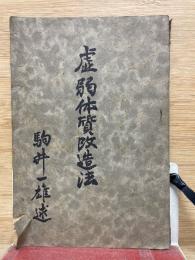 虚弱体質改造法
駒井一雄述